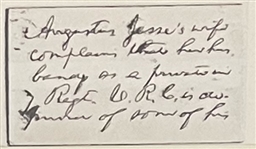 Augustus Jesse's wife
complains that her hus
band as a private in
7 Regt. V. R. C. is de-
of some of his